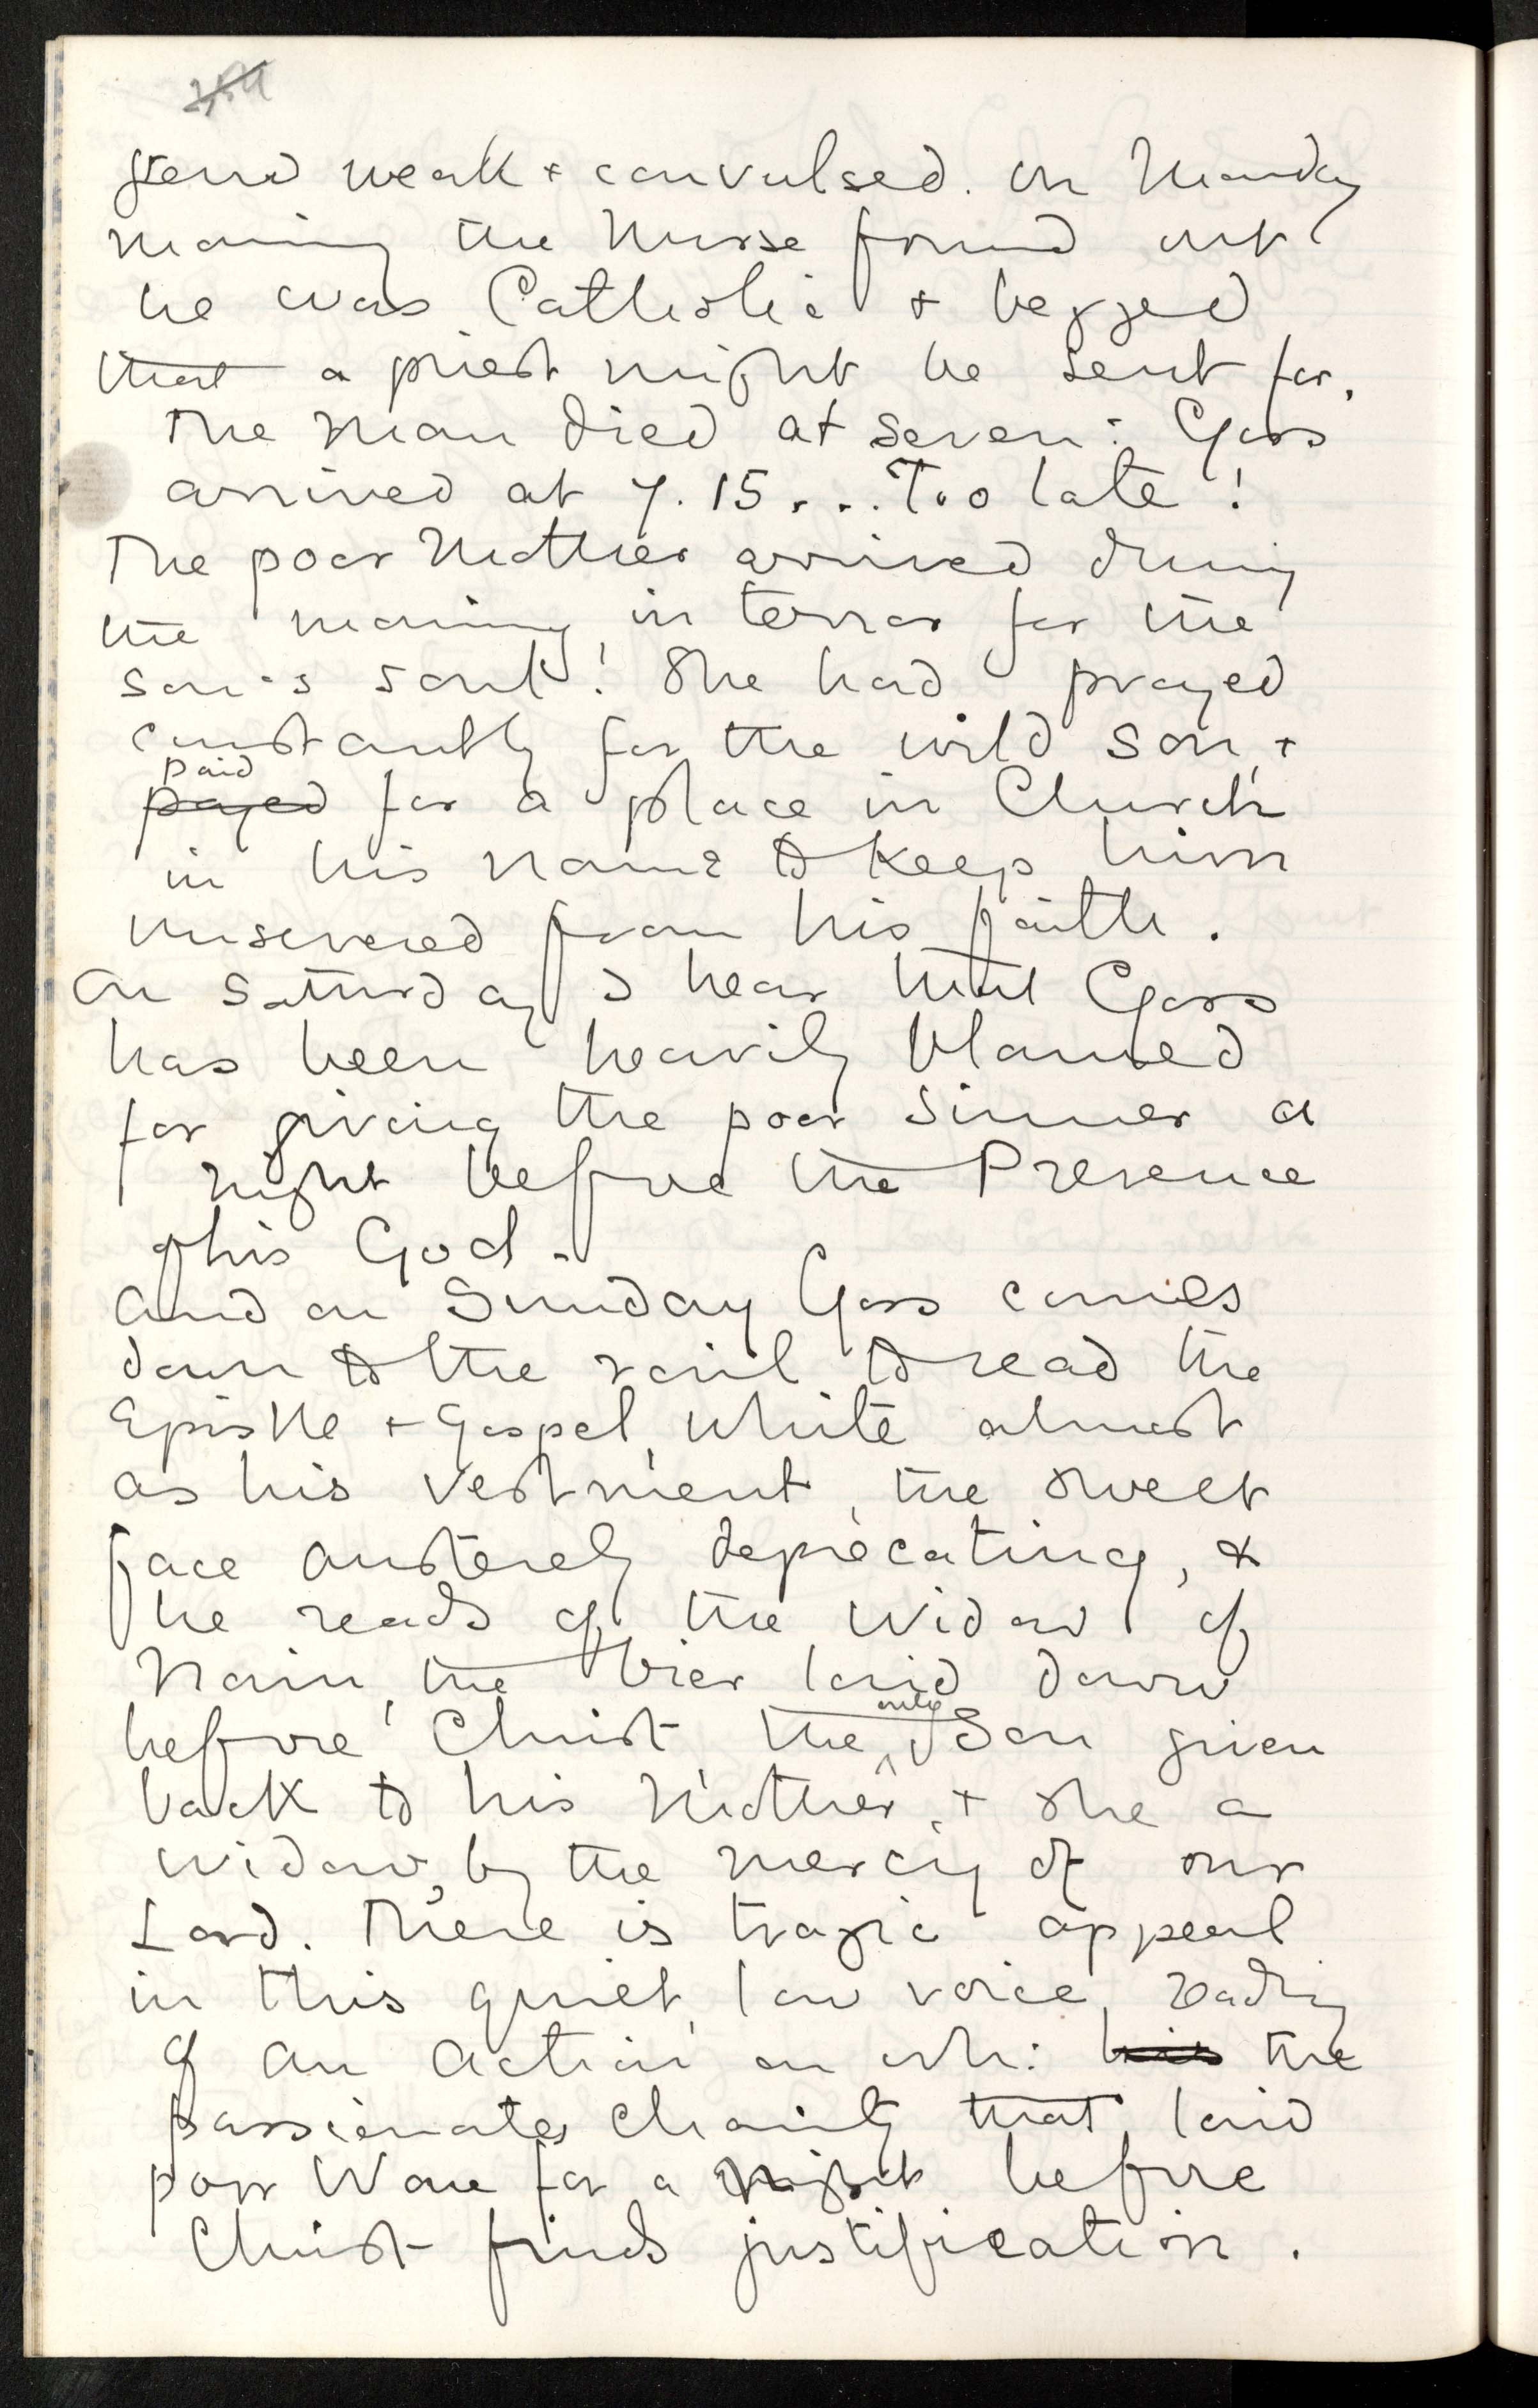 weak + convulsed. On Monday
morning the Nurse found out
he was Catholic + begged
that a priest might be sent for.
The man died at seven: Goss
arrived at 7.15 . . . Too late!
The poor Mother arrived during
the morning, in terror for the
son's soul! She had prayed
constantly for the wild son, +
paid
payed for a place in Church
in his name to keep him
unsevered from his faith.
On Satturday I hear that Goss
has been heavily blamed
for giving the poor sinner a
night before the Presence
of his God.
And on Sunday Goss comes
down to the rail to read the
Epistle + Gospel, white almost
as his vestment, the sweet
face austerely deprecating, &
he reads of the Widow of
Nain, the bier laid down
before Christ the only Son given
back to his Mother, + she a
widow, by the mercy of our
Lord. There is tragic appeal
in this quiet, low voice, reading
of an action on wh: his the
passionate charity that laid
poor Ware for a night before
Christ finds justification.